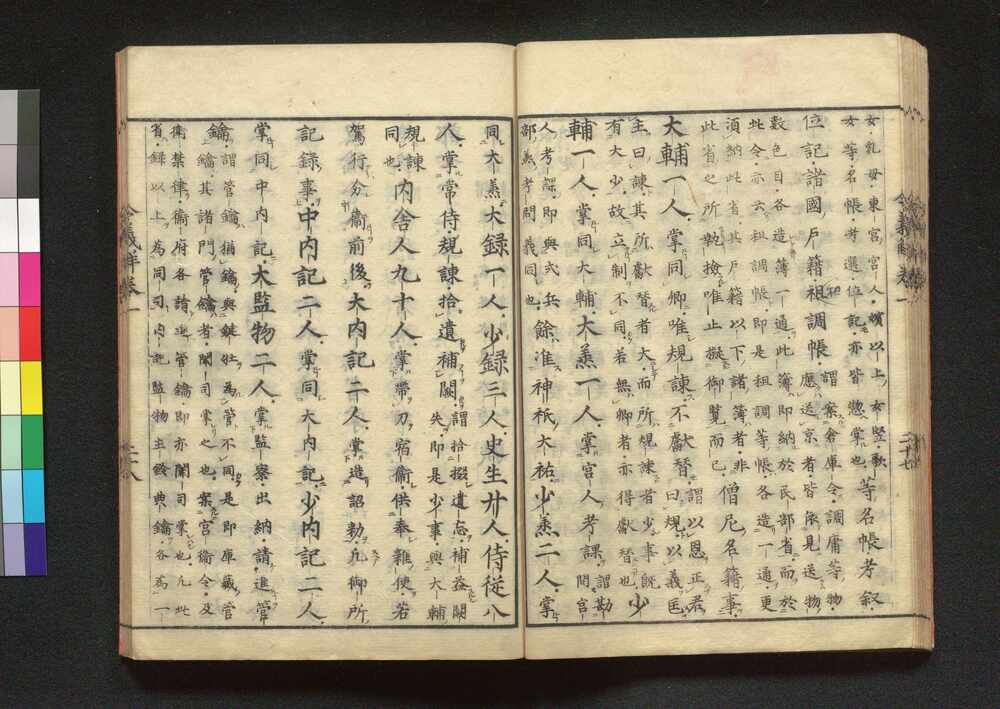 令義解卷一
二十七
女乳母東宮宮人嬪以上女竪歌
女等名帳考選位記亦皆惣掌也
等名帳考叙
位記諸國戸籍租調帳
謂案倉庫令調庸等物
應送京者皆依見送物
數色目各造簿一通此簿即納於民部省而於
此令亦云租調帳即是租調等帳各造一通更
須納此省其戸籍以下諸簿者非
此省之所執撿唯止擬御覽而已
僧尼名籍事
大輔一人掌同卿唯規諫不獻替
謂以恩正君
曰規以義匡
主曰諫其所獻替者大而所規諫者少事既
有大少故立制不同若無卿者亦得獻替也
少
輔一人掌同大輔大䒭一人掌宮人考課
謂勘
問宮
人考課即與式兵
部䒭考問義同也
餘准神祇大祐少䒭二人掌
同大䒭大録一人少録三人史生廿人侍從八
人掌常侍規諫拾遺補闕
謂拾掇遺忘補益闕
失即是少事與大輔
規諫
同也
内舍人九十人掌帶刀宿衞供奉雜使若
駕行分衞前後大内記二人掌造詔勅凡御所
記録事中内記二人掌同大内記少内記二人
掌同中内記大監物二人掌監察出納請進管
鑰
謂管鑰猶鑰與鍵牡爲管不同是即庫藏管
鑰其諸門管鑰者闈司掌之也案宮衞令及
衞禁律衞府各請進管鑰即亦闈司掌也凡此
省録以上爲同司内記監物主鈴典鑰各爲一
令義解卷一
二十八